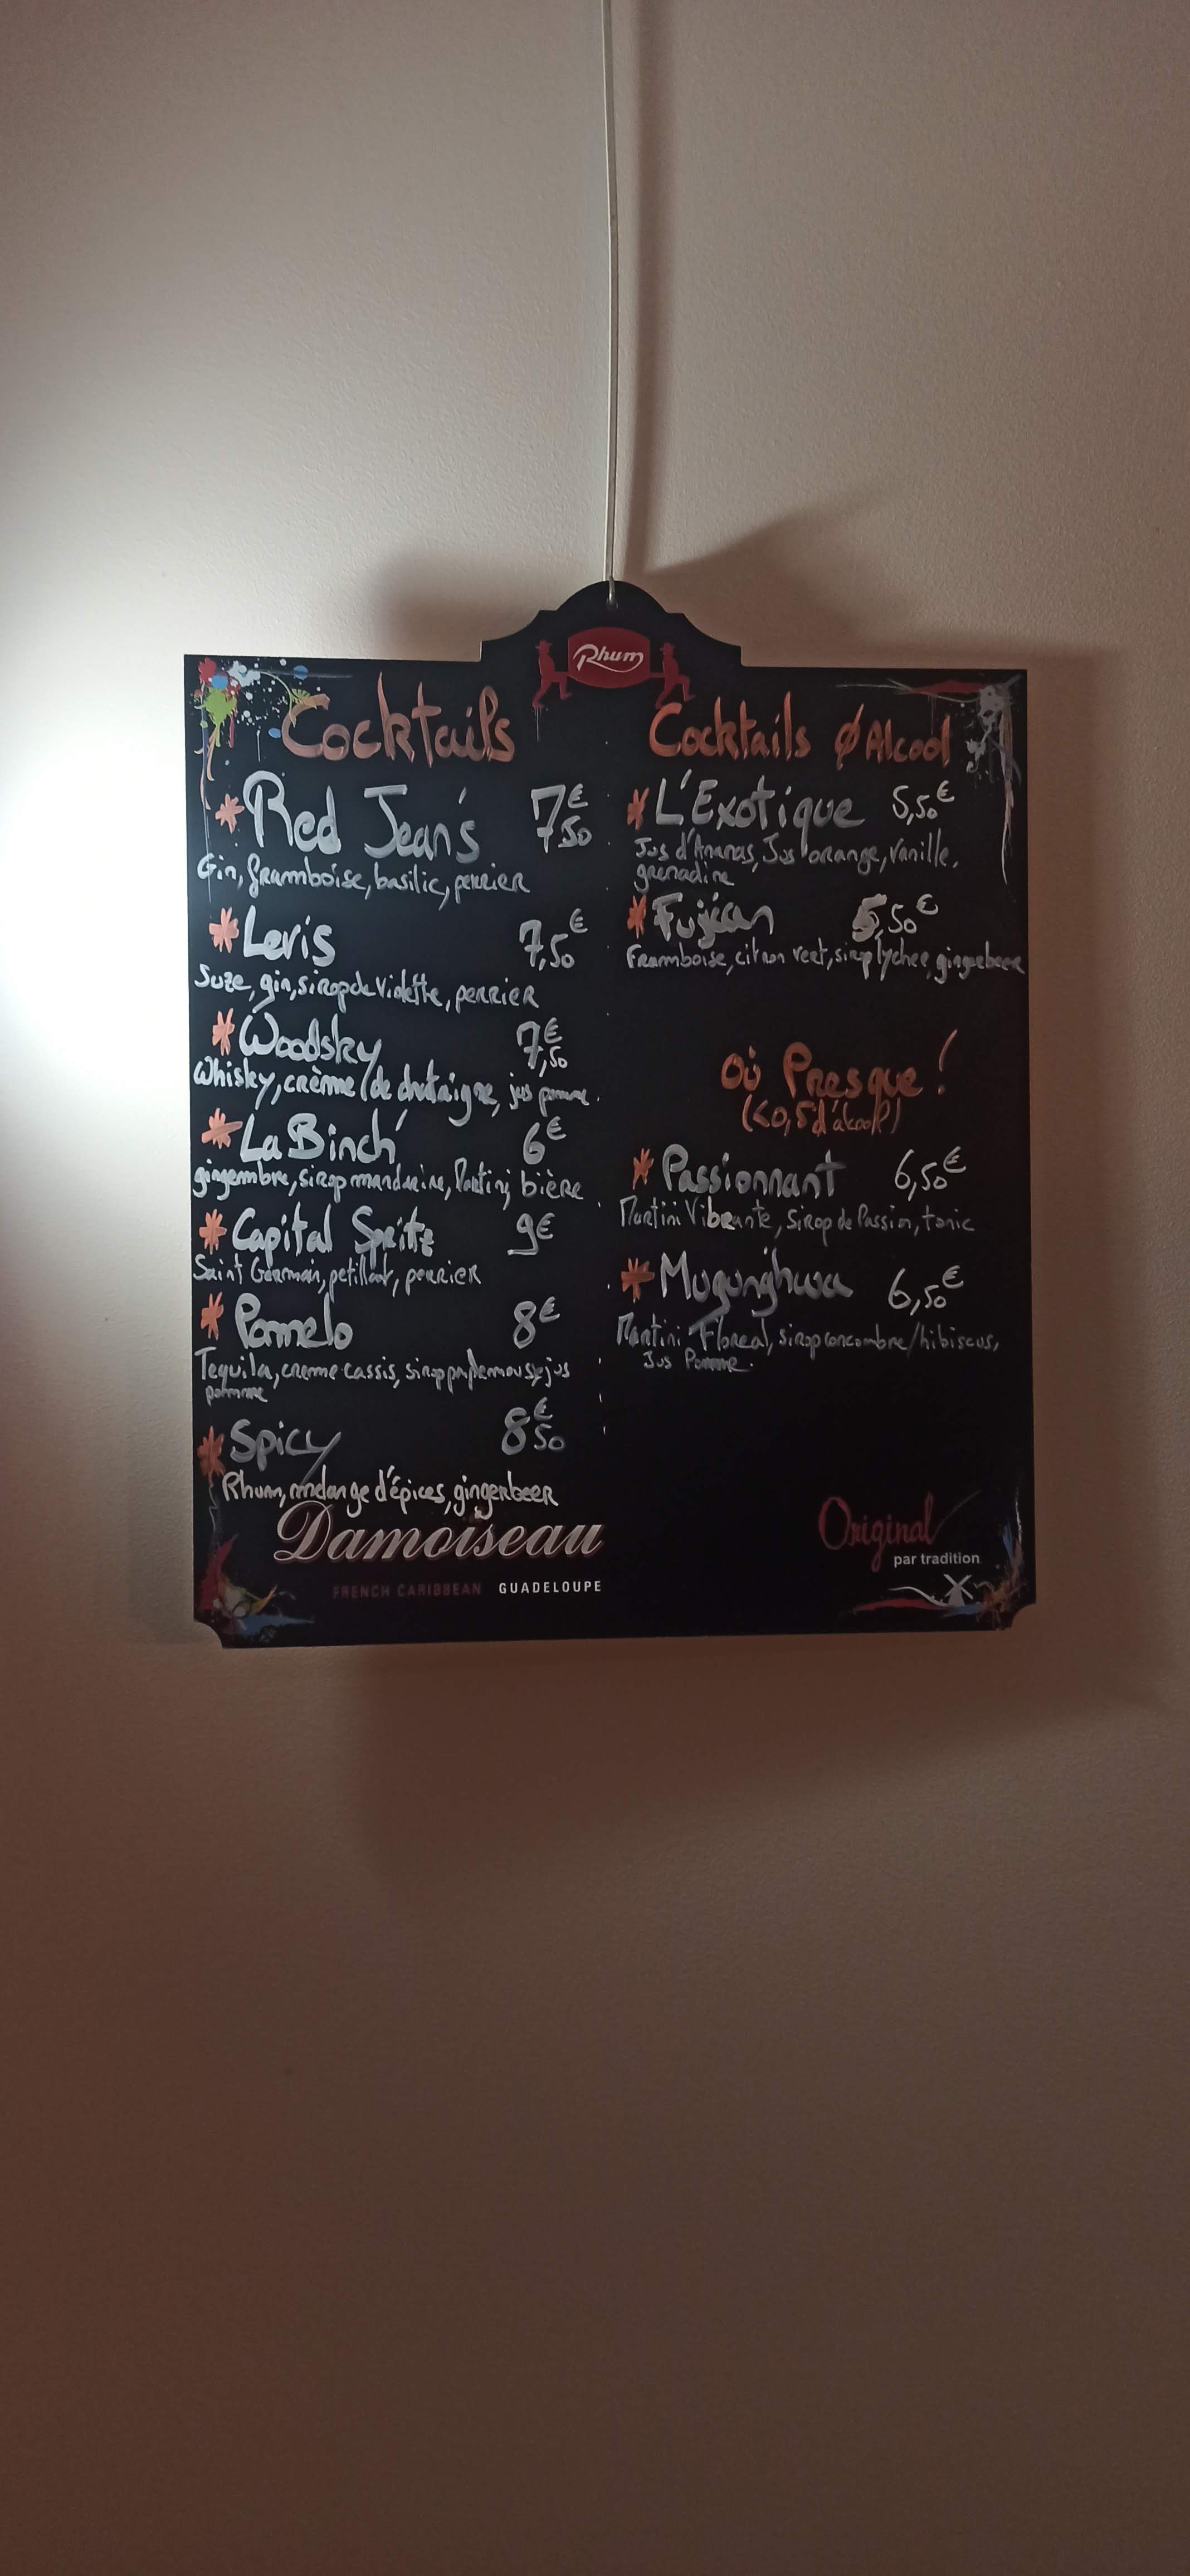 Rhum
Cocktails
* Red Jean's 7€50
Gin, framboise, basilic, perrier
* Levis 7,50€
Suze, gin, sirop de violette, perrier
* Woodsky 7€,50
Whisky, crème de chataigne, jus pomme.
* La Binch' 6€
gingembre, sirop mandarine, Martini, bière
* Capital Spritz 9€
Saint Germain, petillant, perrier
* Pomelo 8€
Tequila, creme cassis, sirop pamplemousse, jus
pomme
* Spicy 8€50
Rhum, melange d'épices, gingerbeer
Damoiseau
FRENCH CARIBBEAN GUADELOUPE
Cocktails Ø Alcool
* L'Exotique 5,50€
Jus d'Ananas, Jus orange, vanille,
grenadine
* Fujian 5,50€
Framboise, citron vert, sirop lychee, gingerbeer
Où Presque !
(<0,5 d'alcool)
* Passionnant 6,50€
Martini Vibrante, Sirop de Passion, tonic
* Mugunghwa 6,50€
Martini Floreal, sirop concombre/hibiscus,
Jus Pomme.
Original
par tradition